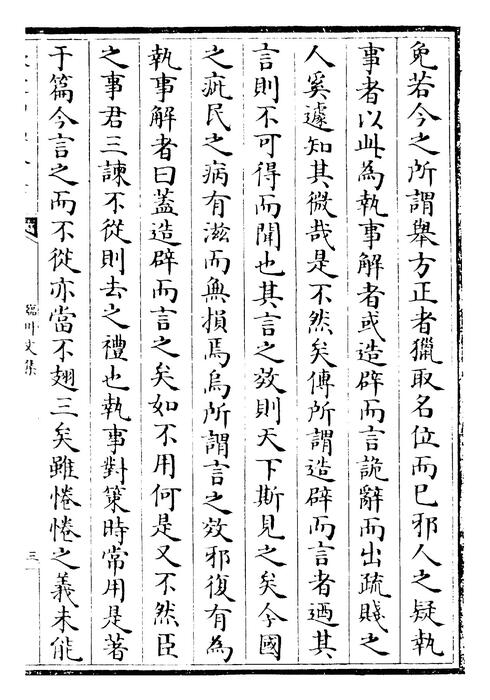 免若今之所謂舉方正者獵取名位而已邪人之疑執
事者以此為執事解者或造辟而言詭辭而出疏賤之
人奚遽知其微哉是不然矣傳所謂造辟而言者迺其
言則不可得而聞也其言之效則天下斯見之矣今國
之疵民之病有滋而無損焉烏所謂言之效邪復有為
執事解者曰蓋造辟而言之矣如不用何是又不然臣
之事君三諫不從則去之禮也執事對策時常用是著
于篇今言之而不從亦當不翅三矣雖惓惓之義未能
臨川文集
三